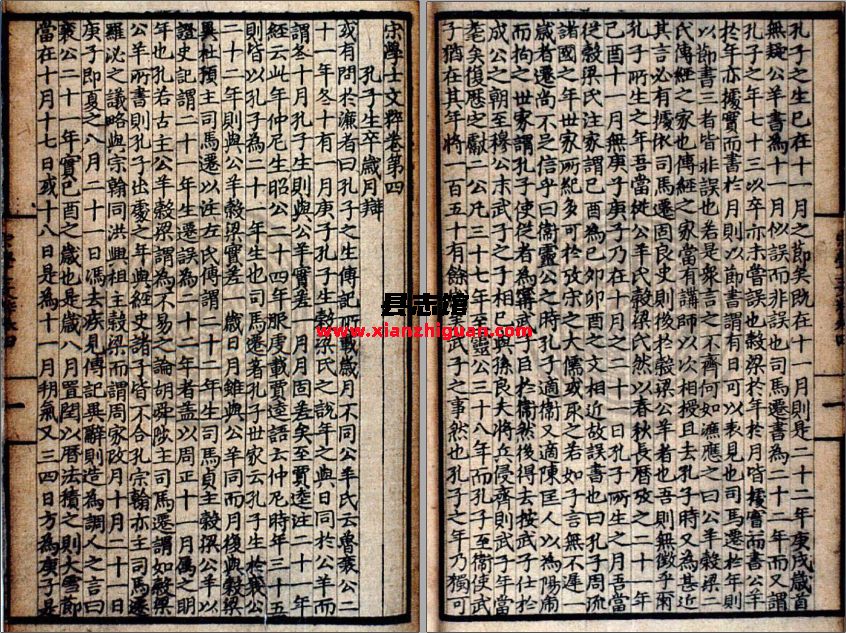 宋學士文粹卷第四
孔子生卒歲月辯
或有問於濂者曰孔子之生傳記所載歲月不同公羊氏云魯襄公二
十一年冬十有一月庚子孔子生穀梁氏之說年之與日同於公羊而
謂冬十月孔子生則與公羊實差一月月固差矣至賈逵注二十一年
經云此年仲尼生昭公二十四年服虔載賈逵語云仲尼時年三十五
則皆以孔子為二十一年生也司馬遷著孔子世家云孔子生於襄公
二十二年則與公羊穀梁實差一歲日月雖與公羊同而月復與穀梁
異杜預主司馬遷以注左氏傳謂二十二年生司馬貞主穀梁公羊以
證史記謂二十一年生遷誤為二十二年者蓋以周正十一月屬之明
年也孔若古主公羊穀梁謂為不易之論胡舜陟主司馬遷謂如穀梁
公羊所書則孔子出處之年與經史諸子皆不合孔宗翰亦主司馬遷
羅泌之議略與宗翰同洪興祖主穀梁而謂周家改月十月二十一日
庚子即夏之八月二十一日馮去疾見傳記異辭則造為調人之言曰
襄公二十一年實己酉之歲也是歲八月置閏以曆法積之則大雪節
當在十月十七日或十八日是為十一月朔氣又三四日方為庚子是
孔子之生已在十一月之節矣既在十一月則是二十二年庚戌歲首
無疑公羊書為十一月似誤而非誤也司馬遷書為二十二年而又謂
孔子之年七十三以卒亦未嘗誤也穀梁於年於月皆據實而書公羊
於年亦據實而書於月則以節書謂有日可以表見也司馬遷於年則
以節書三者皆非誤也若是眾言之不齊何如濂應之曰公羊穀梁二
氏傳經之家也傳經之家當有講師以次相授且去孔子時又為甚近
其言必有據依司馬遷固良史則後於穀梁公羊者也吾則無徵乎爾
孔子所生之年吾當從公羊氏穀梁氏然以春秋長曆攷之二十一年
己酉十一月無庚子庚子乃在十月之二十一日孔子所生之月吾當
從穀梁氏注家謂己酉為己卯卯酉之文相近故誤書也曰孔子周流
諸國之年世家所紀多可於攷宋之大儒或承之若如子言無不遲一
歲者遷尚不足信乎曰衛靈公之時孔子適衛又適陳匡人以為陽虎
而拘之世家謂孔子使從者為甯武子臣於衛然後得去按武子仕於
成公之朝至穆公末武子之子相已與孫良夫將兵侵齊則武子年當
耄矣復歷定獻二公凡三十七年至靈公三十八年而孔子至衛使武
子猶在其年將一百五十有餘歲矣武子之事然也孔子之年乃獨可
县志馆
www.xianzhiguan.com